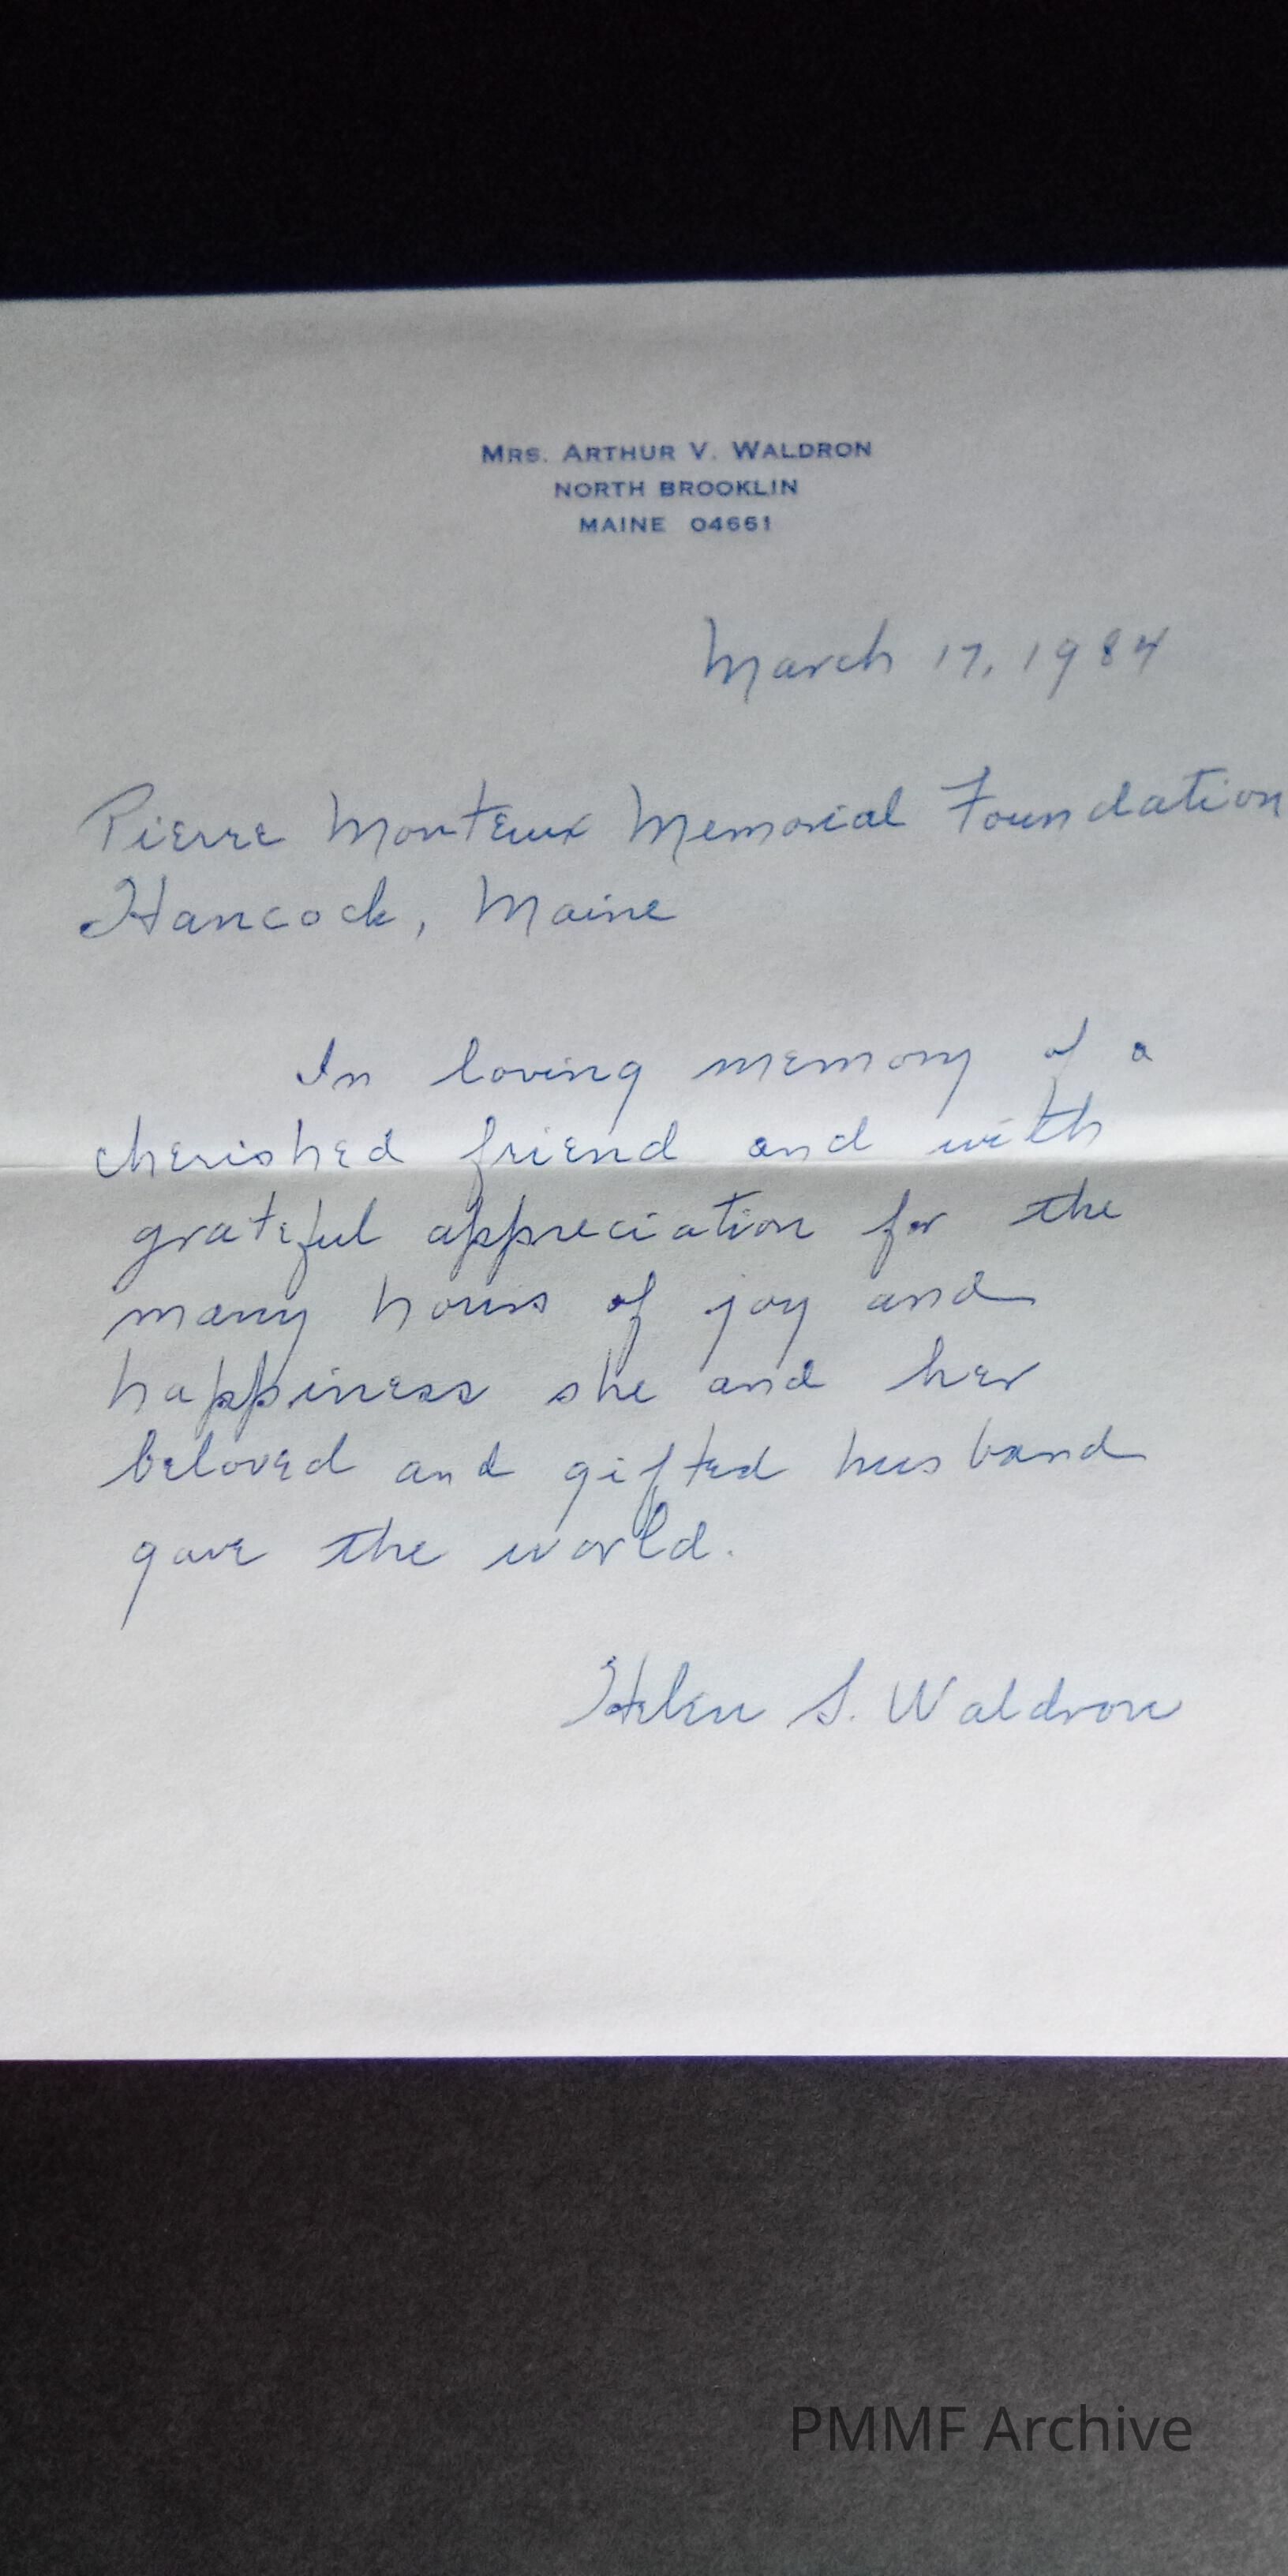 MRS. ARTHUR V. WALDRON
NORTH BROOKLIN
MAINE 04661
March 17, 1984
Pierre Monteux Memorial Foundation
Hancock, Maine
In loving memory of a
cherished friend and with
grateful appreciation for the
many hours of joy and
happiness she and her
beloved and gifted husband
gave the world.
Helen S. Waldron
PMMF Archive